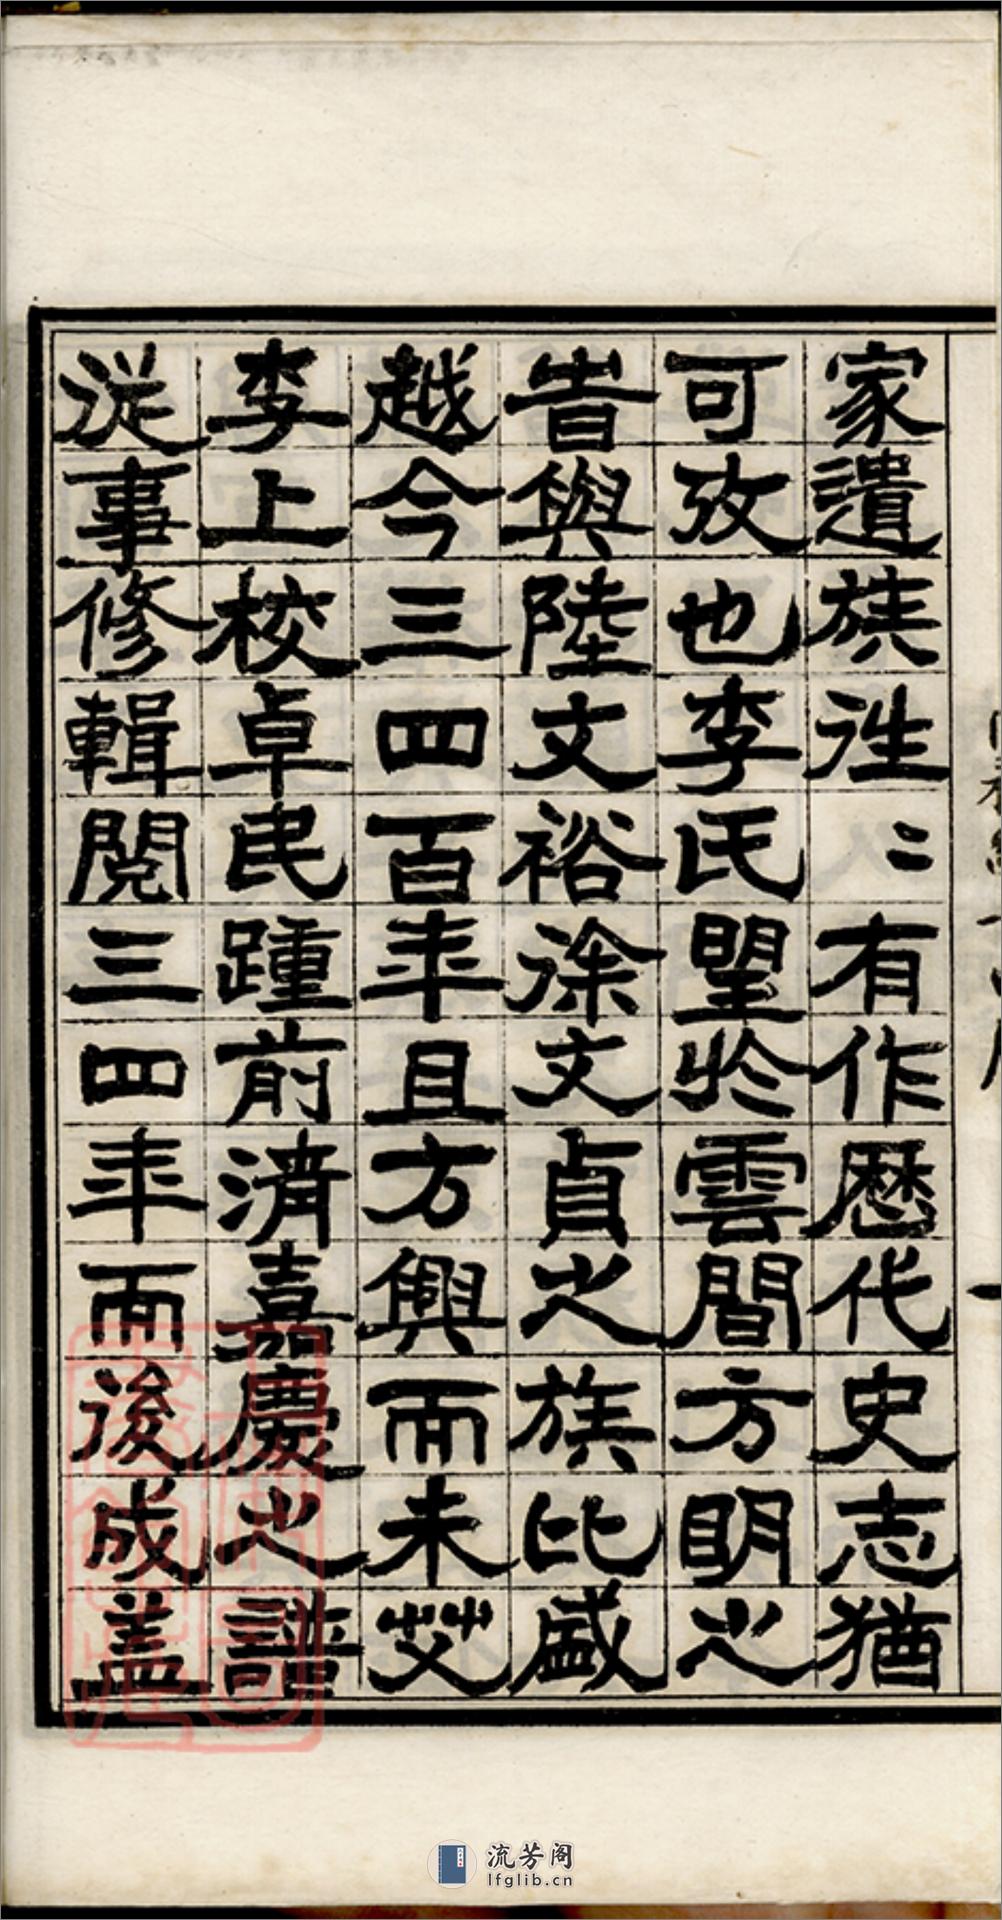 家遺族往〻有作歷代史志猶
可攷也李氏望於雲間方明之
昔與陸文裕徐文貞之族比盛
越今三四百年且方興而未艾
李上校卓民踵前清嘉慶之譜
從事修輯閱三四年而後成蓋
流芳阁
lfglib.cn